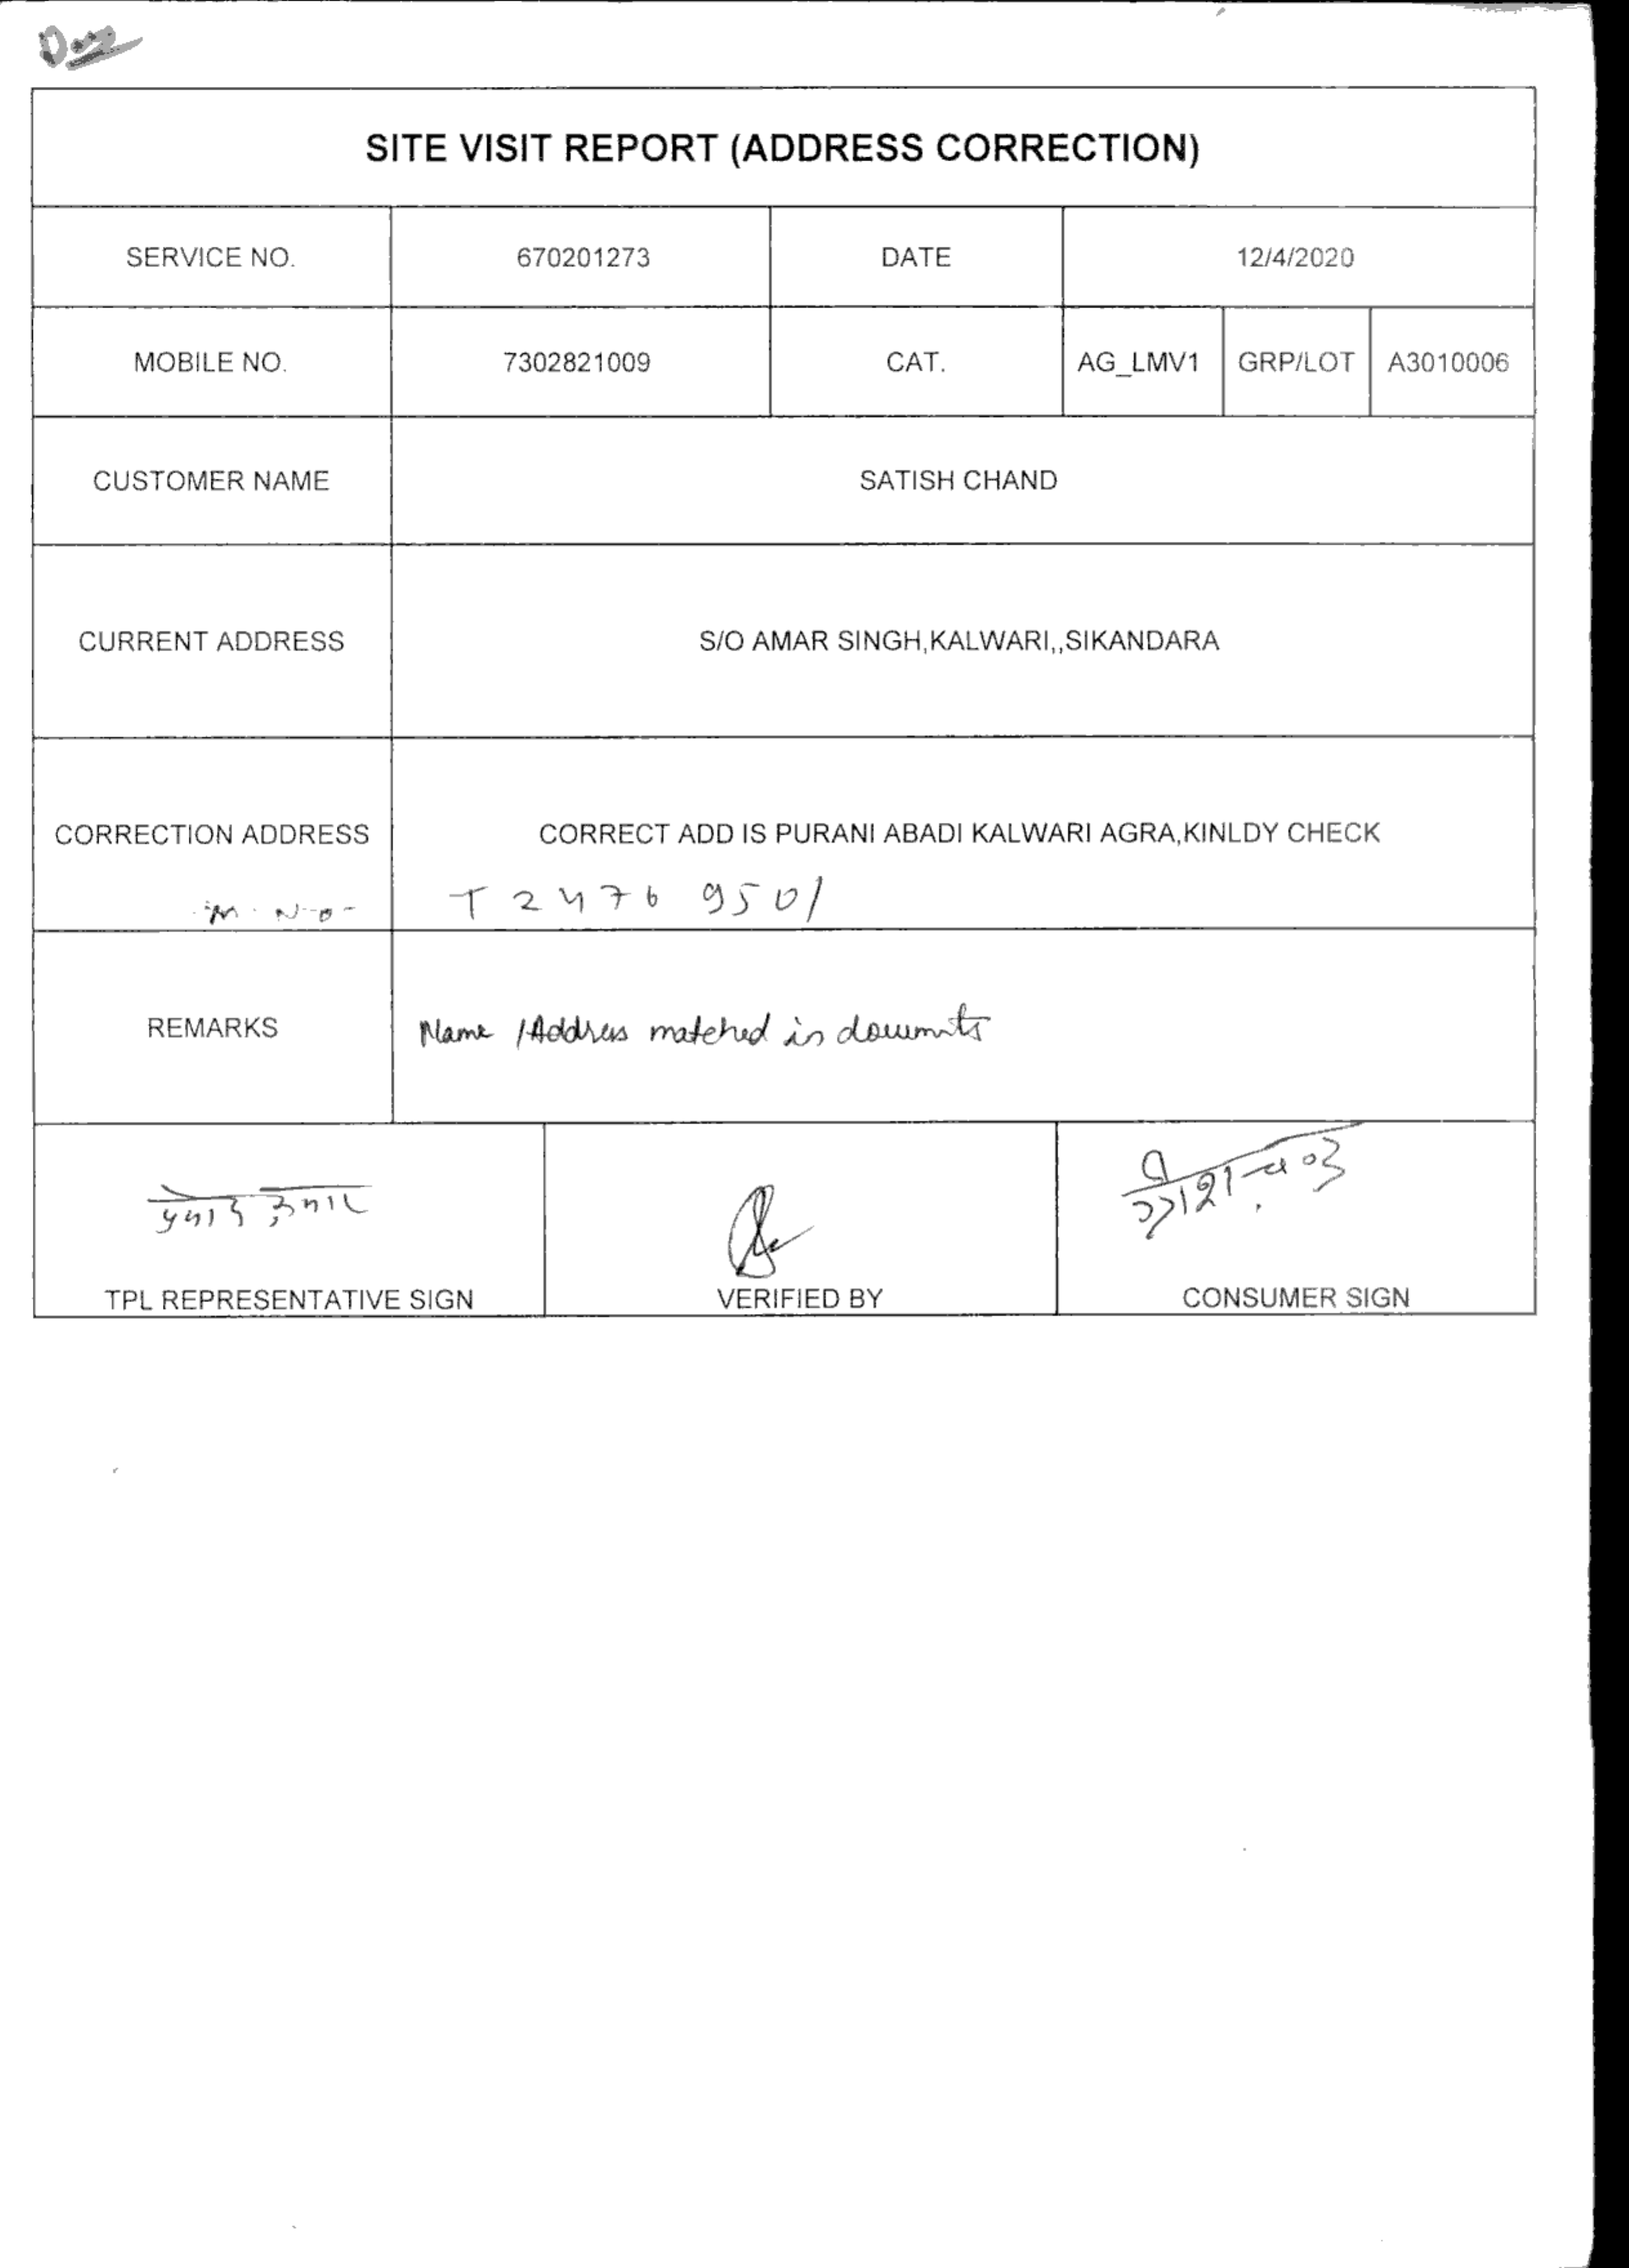 SITE VISIT REPORT (ADDRESS CORRECTION)
SERVICE NO. 670201273 DATE 12/4/2020
MOBILE NO. 7302821009 CAT. AG_LMV1 GRP/LOT A3010006
CUSTOMER NAME SATISH CHAND
CURRENT ADDRESS S/O AMAR SINGH,KALWARI,,SIKANDARA
CORRECTION ADDRESS CORRECT ADD IS PURANI ABADI KALWARI AGRA,KINLDY CHECK
M.NO- T 2476 9501
REMARKS Name /Address matched in documents
TPL REPRESENTATIVE SIGN VERIFIED BY CONSUMER SIGN